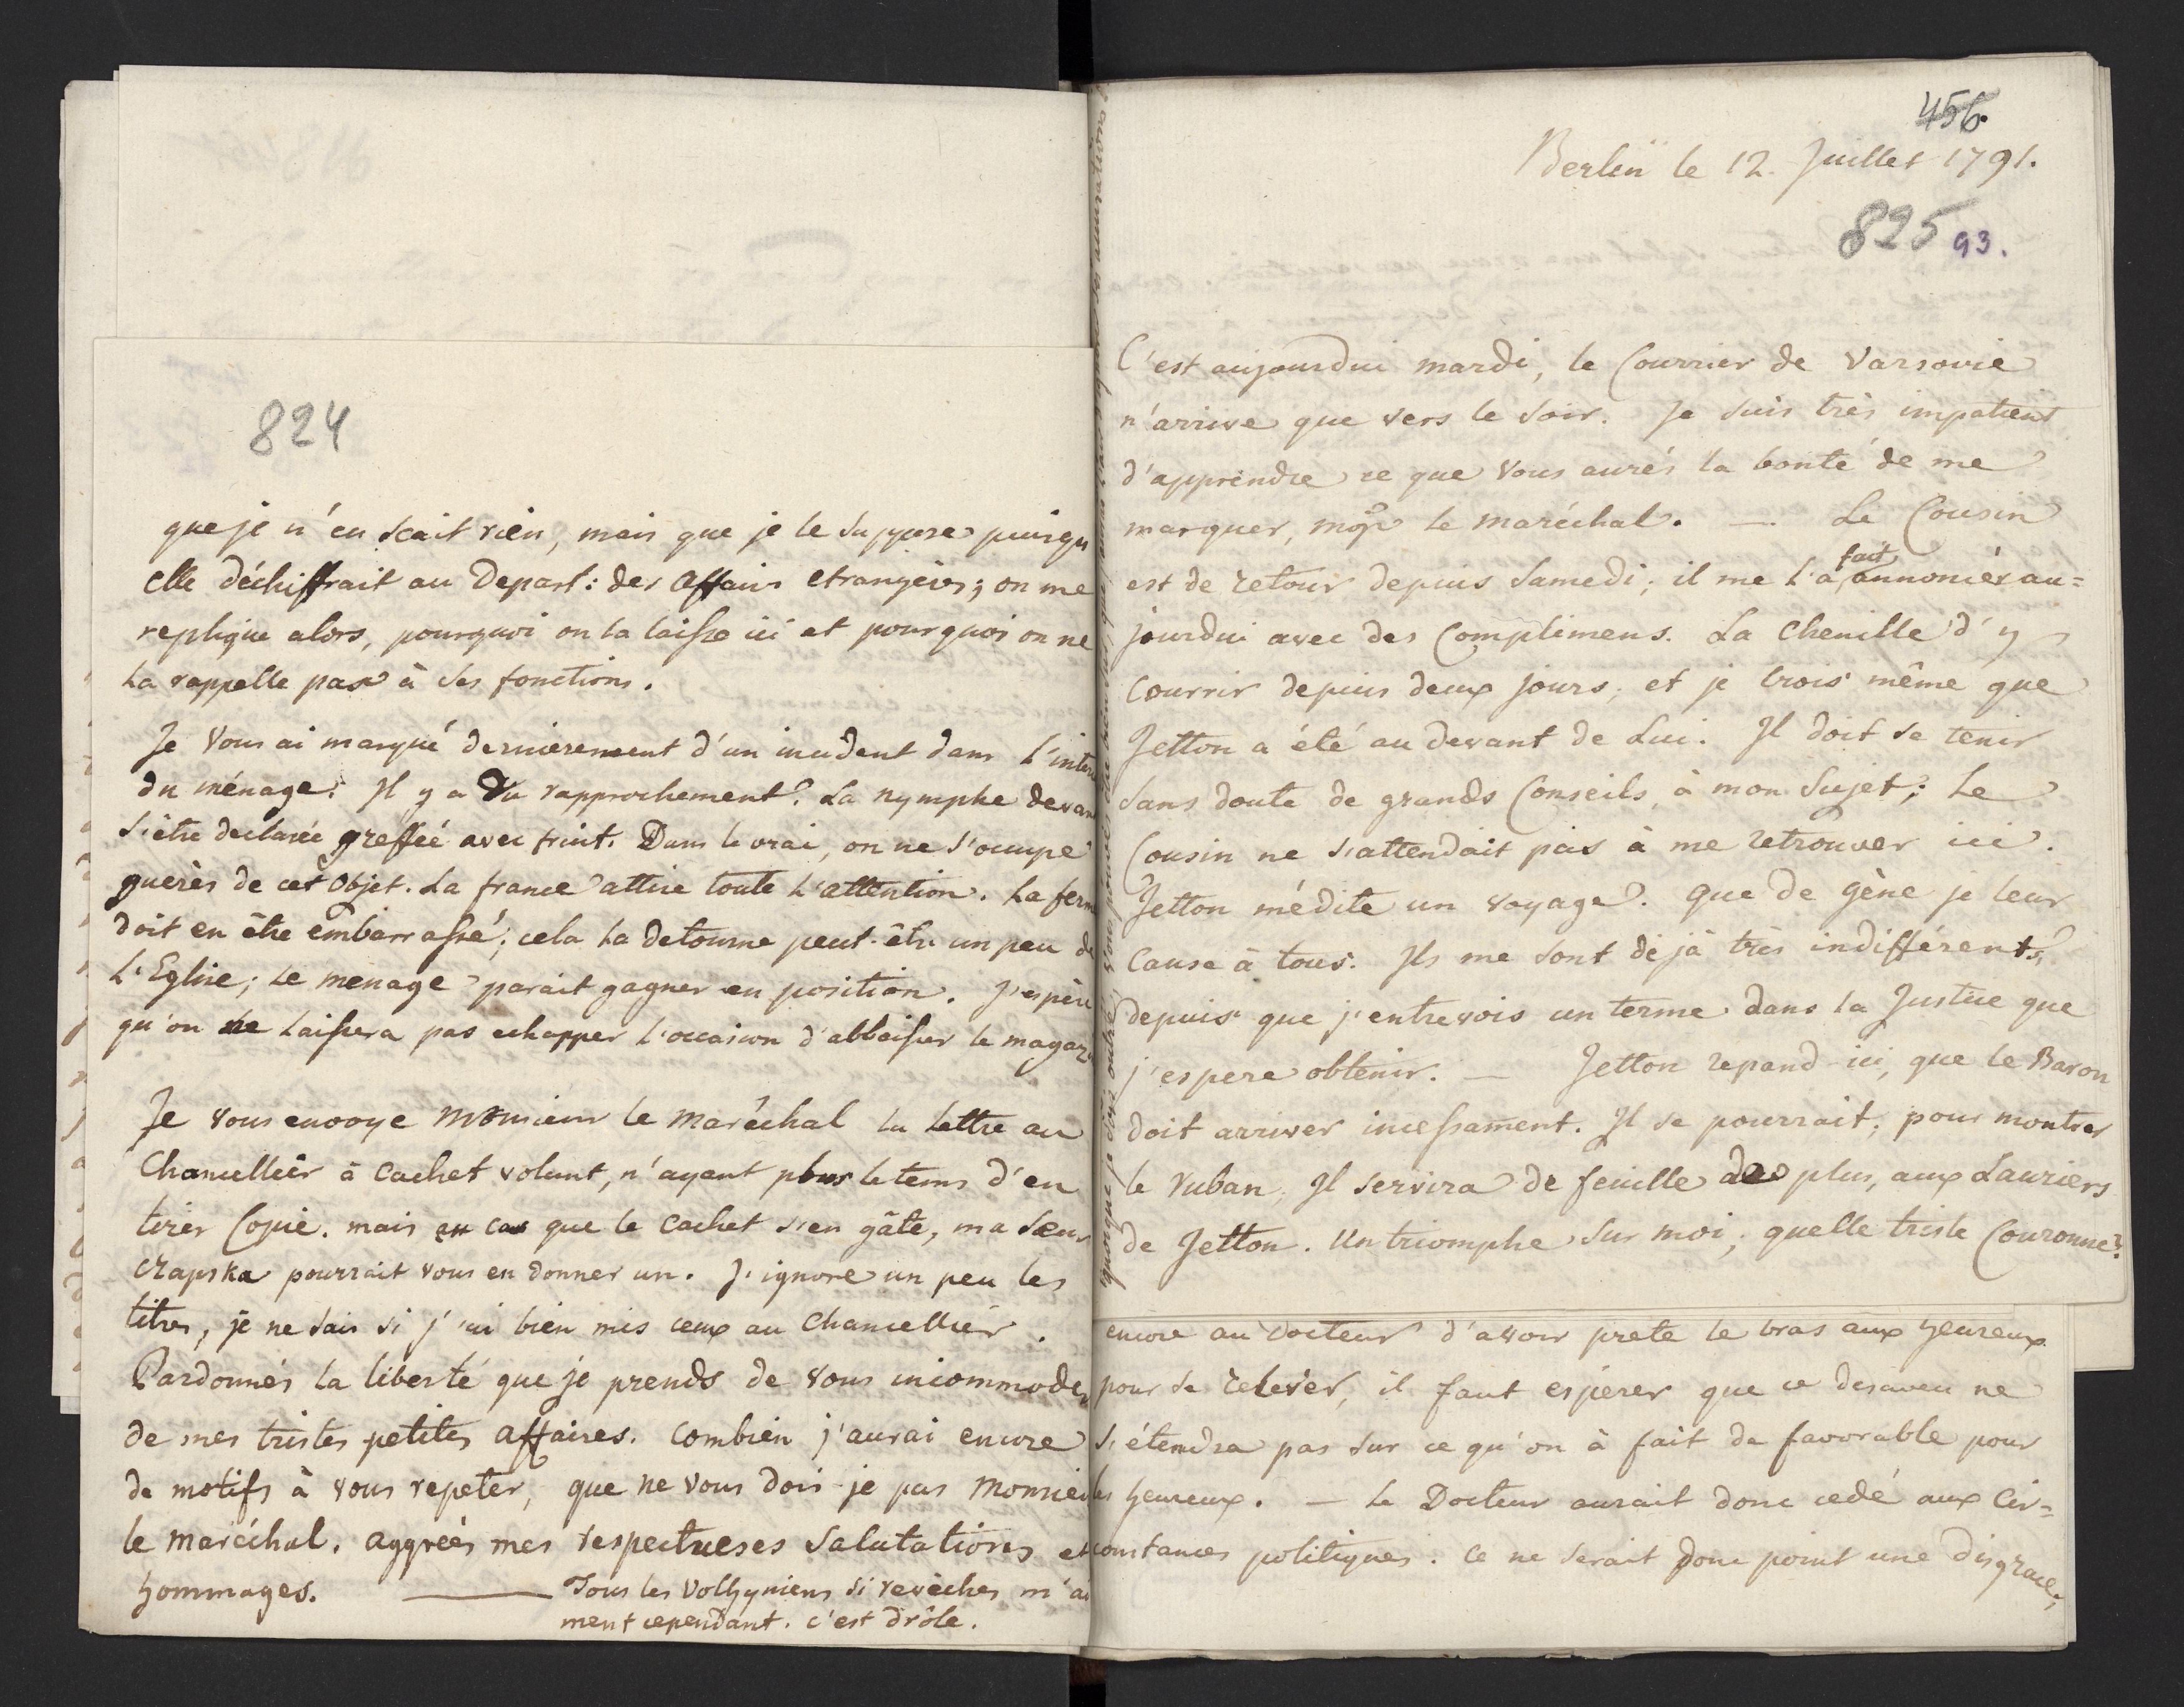 824
que je n'en scait rien, mais que je le suppose puisqu
elle déchiffrait au Depart: des affairs etrangéres; on me
replique alors, pourquoi on la laisse ici et pourquoi on ne
la rappelle pas à ses fonctions.
Je vous ai marqué dernierement d'un incident dans l'inter
du ménage. Il y a du rapprochement. La nymphe devan
s'être declarée greffée avec fruit. Dans le vrai, on ne s'occupe
guerès de cet objet. La france attire toute l'attention. La ferm
doit en être embarrassé; cela la detourne peut-être un peu de
l'Eglise; le menage parait gagner en position. J'espère
qu'on ne laissera pas echapper l'occasion d'abbaisser le magaz
Je vous envoye Monsieur le Maréchal la lettre au
Chancellier à cachet volant, n'ayant plus le tems d'en
tirer Copie. mais en cas que le cachet s'en gâte, ma sœur
czapska pourrait vous en donner un. J'ignore un peu les
titres, je ne sais si j'ai bien mis ceux au Chancellier.
Pardonnés la liberté que je prends de vous incommoder
de mes tristes petites affaires. combien j'aurai encore
de motifs à vous repeter, que ne vous dois-je pas Monsieu
le maréchal. aggréés mes respectueses salutations et
hommages. — Tous les Volhyniens si revèches m'ai
ment cependant. c'est drôle.
456.
Berlin le 12. Juillet 1791.
825 93.
C'est aujourdui mardi, le Courrier de Varsovie
n'arrive que vers le soir. Je suis très impatient
d'apprendre ce que vous aurés la bonté de me
marquer, mgr le maréchal. — Le Cousin
est de retour depuis samedi; il me l'a fait annoncér au=
jourdui avec des Complimens. La Chenille d'y
courrir depuis deux jours, et je crois même que
Jetton a été au devant de Lui. Il doit se tenir
sans doute de grands Conseils à mon Sujet; Le
Cousin ne s'attendait pas à me retrouver ici.
Jetton médite un voyage. que de gène je leur
cause à tous. Ils me sont déjà très indifférents,
depuis que j'entrevois un terme dans la Justice que
j'espere obtenir. — Jetton repand ici, que le Baron
doit arriver incessament. Il se pourrait; pour montrer
le ruban, Il servira de feuille de plus, aux Lauriers
de Jetton. Un triomphe sur moi, quelle triste Couronne?
encore au docteur d'avoir prete le bras aux heureux
pour se relever, il faut espérer que ce desaveu ne
s'étendra pas sur ce qu'on à fait de favorable pour
les heureux. — Le Docteur aurait donc cedé aux Cir=
constances politiques. ce ne serait donc point une disgrace,